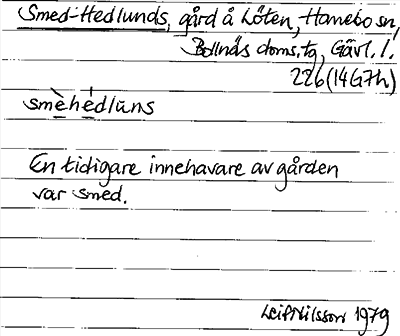 Smed-Hedlunds, gård å Löten, Hanebo sn,
Bollnäs doms.tg, Gävl. l.
226 (14G7h)
smèhédluns
En tidigare innehavare av gården
var smed.
Leif Nilsson 1979